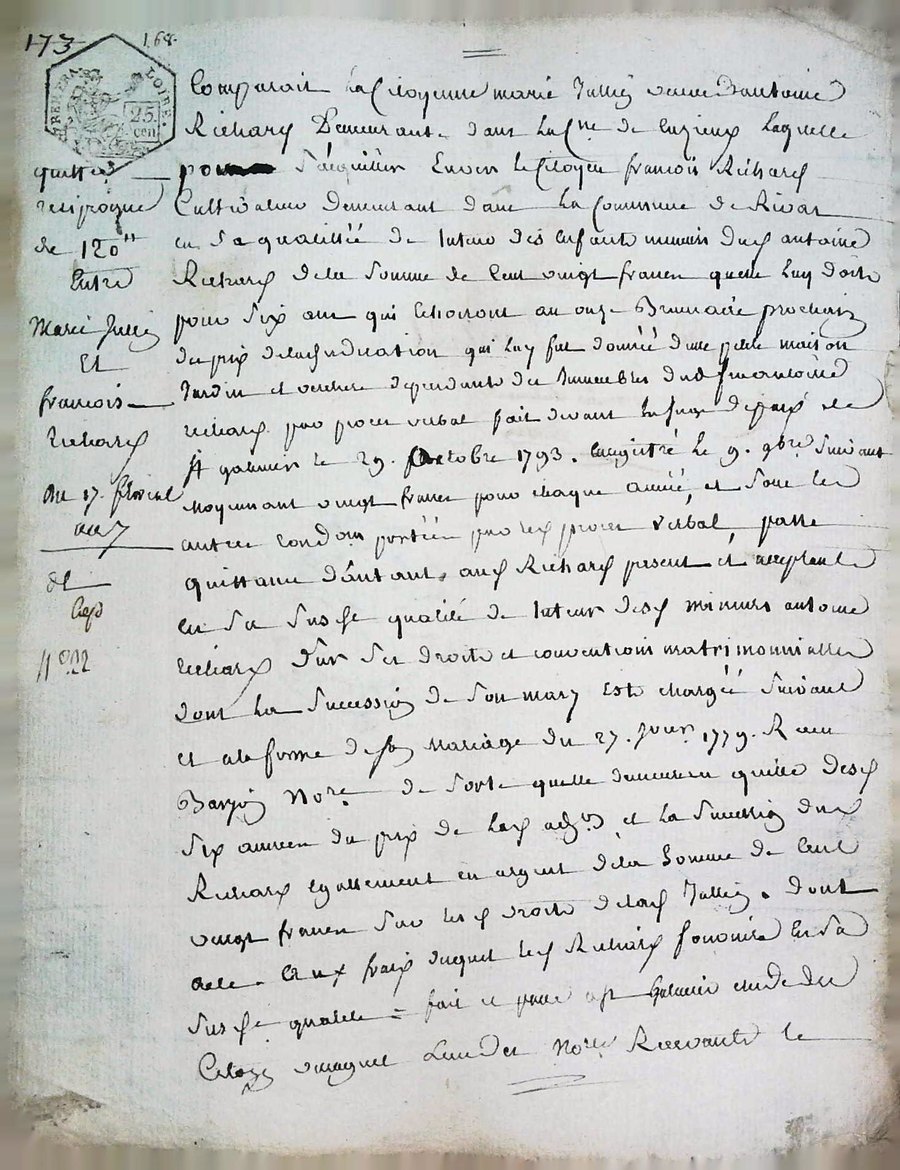 173
168
REP. FRA.
LOIRE.
25
cen
quittance
resiproque
de 120"
Entre
Marie Jullien
Et
francois
Richard
du 17. floreal
an 7
Exp
N° 22
Comparoit la Citoyenne marie Jullien veuve d'antoine
Richard Demeurant dans la Cne de Luzieux laquelle
pour s'acquitter Envers le Citoyen francois Richard
Cultivateur demeurant dans la Commune de Rivas
en sa qualitté de tuteur des Enfants mineurs dud antoine
Richard de la somme de Cent vingt francs quelle luy doit
pour six ans qui Echoiront au onze Brumaire prochain
du prix de l'adjudication qui luy fut donnée d'une petite maison
Jardin et verchere dependante des Immeubles dud antoine
richard par procès verbal fait devant le Juge de paix de
St galmier le 29. octobre 1793. Enregistré le 9. 9bre suivant
moyennant vingt francs pour chaque année, et sous les
autres condons portées par led procès verbal, passe
quittance d'autant aud Richard present et acceptant
en sa susde qualité de tuteur desd mineurs antoine
richard sur ses droits et conventions matrimonnialles
dont la succession de son mary Est chargée suivant
et a la forme de son mariage du 27. Janvr 1779. Recu
Barjon Nore de sorte quelle demeurera quitte desd
six années du prix de lad adjon et la succession dud
Richard Egallement en argent de la somme de Cent
vingt francs sur lesd droits de lad Jullien. dont
acte. aux frais duquel led Richard fournira En sa
susde qualité = fait et passé a st galmier etude du
Citoyen Lun des Nores Recevants le